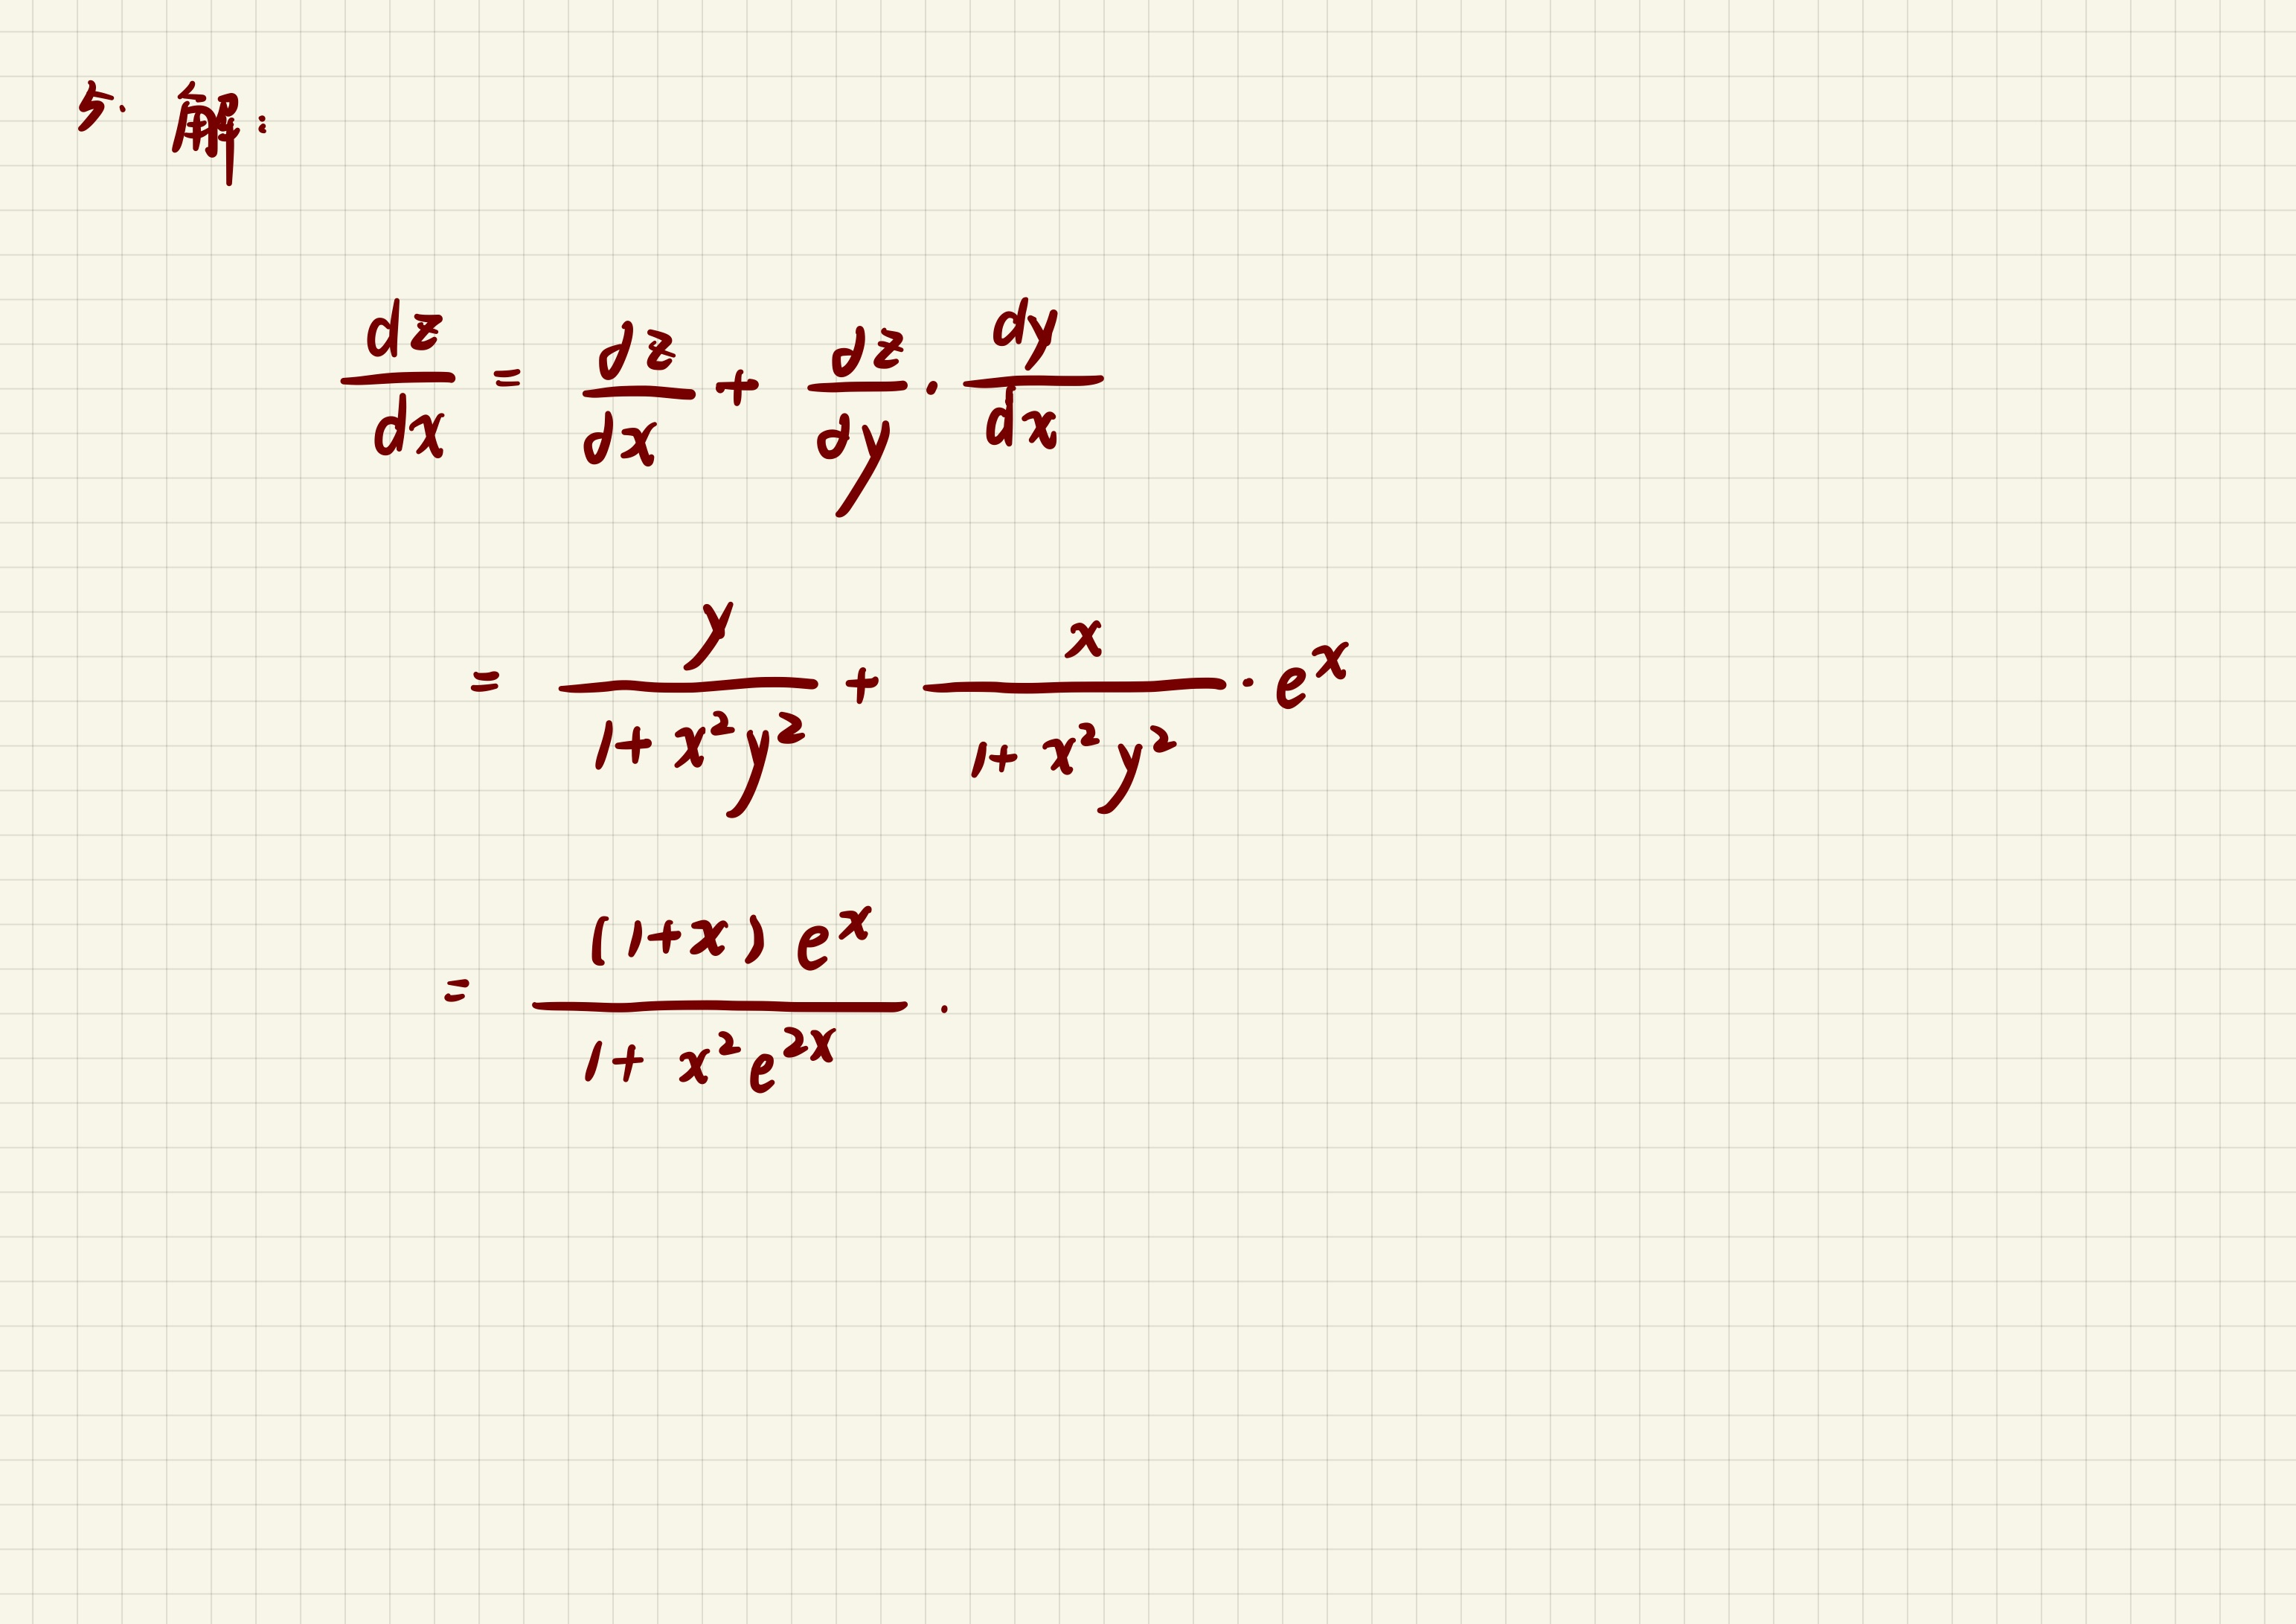 5. 解:
dz/dx = ∂z/∂x + ∂z/∂y · dy/dx
= y/(1+x²y²) + x/(1+x²y²) · eˣ
= (1+x)eˣ/(1+x²e²ˣ) .